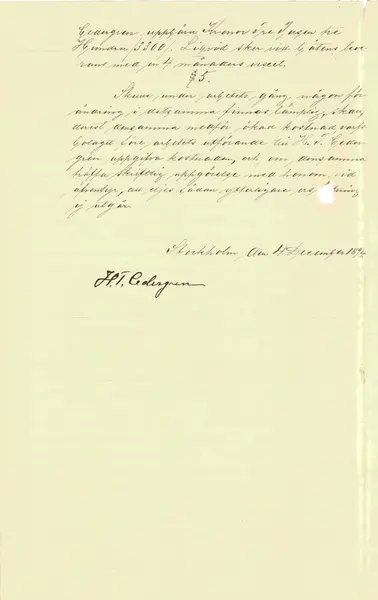 Cedergren uppbära Kronor Tre Tusen tre
Hundra 3300/. Likvid sker vid båtens leve-
rans med en 4 månaders vexel.
§ 5.
Skulle under arbetets gång någon för-
ändring i detsamma finnas lämplig, skall,
derest densamma medför ökad kostnad, varfs-
bolaget före arbetets utförande till H. T. Ceder-
gren uppgifva kostnaden, och om densamma
träffa skriftlig uppgörelse med honom, vid
äfventyr, att eljes sådan ytterligare
ej utgår.
Stockholm den 4 December 189
H. T. Cedergren